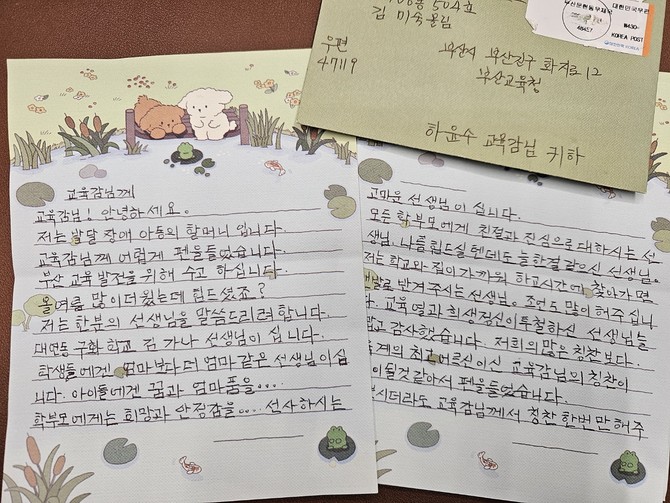 504호
김 미숙 올림
우편
47119
부산시 부산진구 화지로 12
부산교육청
하윤수 교육감님 귀하
대한민국우편
KOREA POST
교육감님께
교육감님! 안녕하세요.
저는 발달 장애 아동의 할머니 입니다.
교육감님께 어렵게 펜을 들었습니다.
부산 교육 발전을 위해 수고 하십니다.
올여름 많이 더웠는데 힘드셨죠?
저는 한분의 선생님을 말씀드리려 합니다.
대연동 구화 학교 김 가나 선생님이 십니다.
학생들에겐 엄마보다 더 엄마 같은 선생님이십
니다. 아이들에겐 꿈과 엄마품을....
학부모에게는 희망과 안정감을.... 선사하시는
고마운 선생님이 십니다.
모든 학부모에게 친절과 진심으로 대하시는 선
생님. 나름 힘드실텐데도 늘 한결 같으신 선생님.
저는 학교와 집이 가까워 하교시간에 찾아가면
반겨주시는 선생님. 조언도 많이 해주십니
다. 교육열과 희생정신이 투철하신 선생님을
감사했습니다. 저희의 많은 칭찬보다.
최고 어르신이신 교육감님의 칭찬이
것 같아서 펜을 들었습니다.
교육감님께서 칭찬 한번만 해주